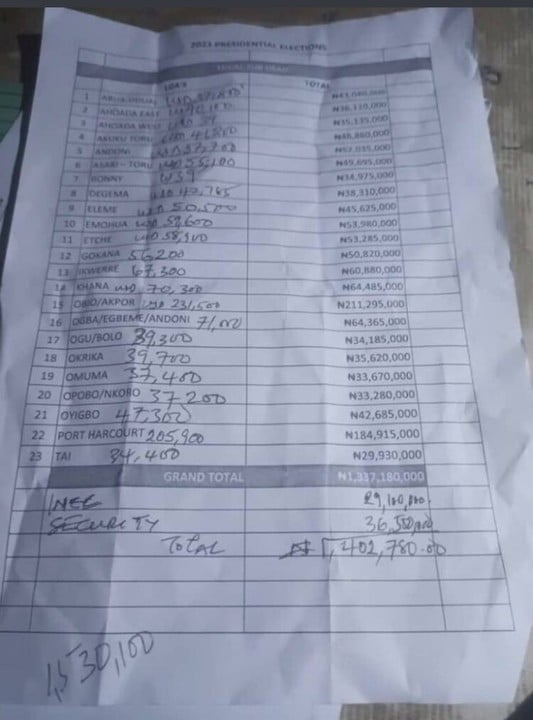 2023 PRESIDENTIAL ELECTIONS
LGA'S TOTAL
1
2 AHOADA EAST ₦36,110,000
3 AHOADA WEST ₦35,135,000
4 AKUKU TORU ₦40,860,000
5 ANDONI 57,700 ₦52,035,000
6 ASARI - TORU USD 55,100 ₦49,695,000
7 BONNY ₦34,975,000
8 DEGEMA ₦38,310,000
9 ELEME USD 50,500 ₦45,625,000
10 EMOHUA USD 59,600 ₦53,980,000
11 ETCHE USD 58,900 ₦53,285,000
12 GOKANA 56,200 ₦50,820,000
13 IKWERRE 67,300 ₦60,880,000
14 KHANA USD 70,300 ₦64,485,000
15 OBIO/AKPOR USD 231,500 ₦211,295,000
16 OGBA/EGBEME/ANDONI 71,000 ₦64,365,000
17 OGU/BOLO 39,300 ₦34,185,000
18 OKRIKA 39,700 ₦35,620,000
19 OMUMA 37,400 ₦33,670,000
20 OPOBO/NKORO 37,200 ₦33,280,000
21 OYIGBO 47,300 ₦42,685,000
22 PORT HARCOURT 205,900 ₦184,915,000
23 TAI 34,400 ₦29,930,000
GRAND TOTAL ₦1,337,180,000
INEC 29,100,000
SECURITY 36,500,000
TOTAL ₦1,402,780.00
1,530,100